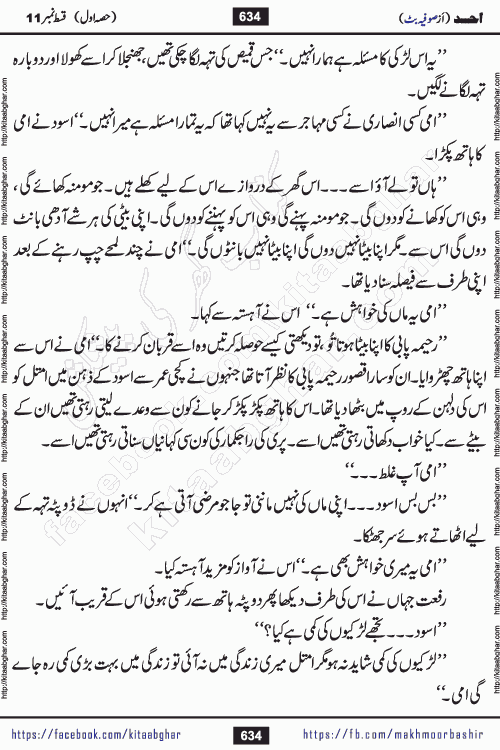 احمد (از صوفیہ بٹ) 634 (حصہ اول) قسط نمبر 11
”یہ اس لڑکی کا مسئلہ ہے ہمارا نہیں۔“ جس قمیص کی تہہ لگا چکی تھیں، جھنجلا کر اسے کھولا اور دوبارہ
تہہ لگانے لگیں۔
”امی کسی انصاری نے کسی مہاجر سے یہ نہیں کہا تھا کہ یہ تمہارا مسئلہ ہے میرا نہیں۔“ اسود نے امی
کا ہاتھ پکڑا۔
”ہاں تو لے آؤ اسے ۔۔۔ اس گھر کے دروازے اس کے لیے کھلے ہیں۔ جو مومنہ کھائے گی،
وہی اس کو کھانے کو دوں گی۔ جو مومنہ پہنے گی وہی اس کو پہننے کو دوں گی۔ اپنی بیٹی کی ہر شے آدھی بانٹ
دوں گی اس سے۔ مگر اپنا بیٹا نہیں دوں گی اپنا بیٹا نہیں بانٹوں گی۔“ امی نے چند لمحے چپ رہنے کے بعد
اپنی طرف سے فیصلہ سنا دیا تھا۔
”امی یہ ماں کی خواہش ہے۔“ اس نے آہستہ سے کہا۔
”رحیمہ پاپی کا اپنا بیٹا ہوتا تو، تو دیکھتی کیسے حوصلہ کرتیں وہ اسے قربان کرنے کا۔“ امی نے اس سے
اپنا ہاتھ چھڑوایا۔ ان کو سارا قصور رحیمہ پاپی کا نظر آتا تھا جنہوں نے کچی عمر سے اسود کے ذہن میں امتل کو
اس کی دلہن کے روپ میں بٹھا دیا تھا۔ اس کا ہاتھ پکڑ پکڑ کر جانے کون سے وعدے لیتی رہتی تھیں ان کے
بیٹے سے۔ کیا خواب دکھاتی رہتی تھیں اسے۔ پری کی راجکمار کی کون سی کہانیاں سناتی رہتی تھیں اسے۔
”امی آپ غلط ۔۔۔“
”بس بس اسود ۔۔۔ اپنی ماں کی نہیں ماننی تو جا جو مرضی آتی ہے کر۔“ انہوں نے دوپٹہ تہہ کے
لیے اٹھاتے ہوئے سر جھٹکا۔
”امی یہ میری خواہش بھی ہے۔“ اس نے آواز کو مزید آہستہ کیا۔
رفعت جہاں نے اس کی طرف دیکھا پھر دوپٹہ ہاتھ سے رکھتی ہوئی اس کے قریب آئیں۔
”اسود ۔۔۔ تجھے لڑکیوں کی کمی ہے کیا؟“
”لڑکیوں کی کمی شاید نہ ہو مگر امتل میری زندگی میں نہ آئی تو زندگی میں بہت بڑی کمی رہ جائے
گی امی۔“
https://facebook.com/kitaabghar 634 https://fb.com/makhmoorbashir
http://kitaabghar.com